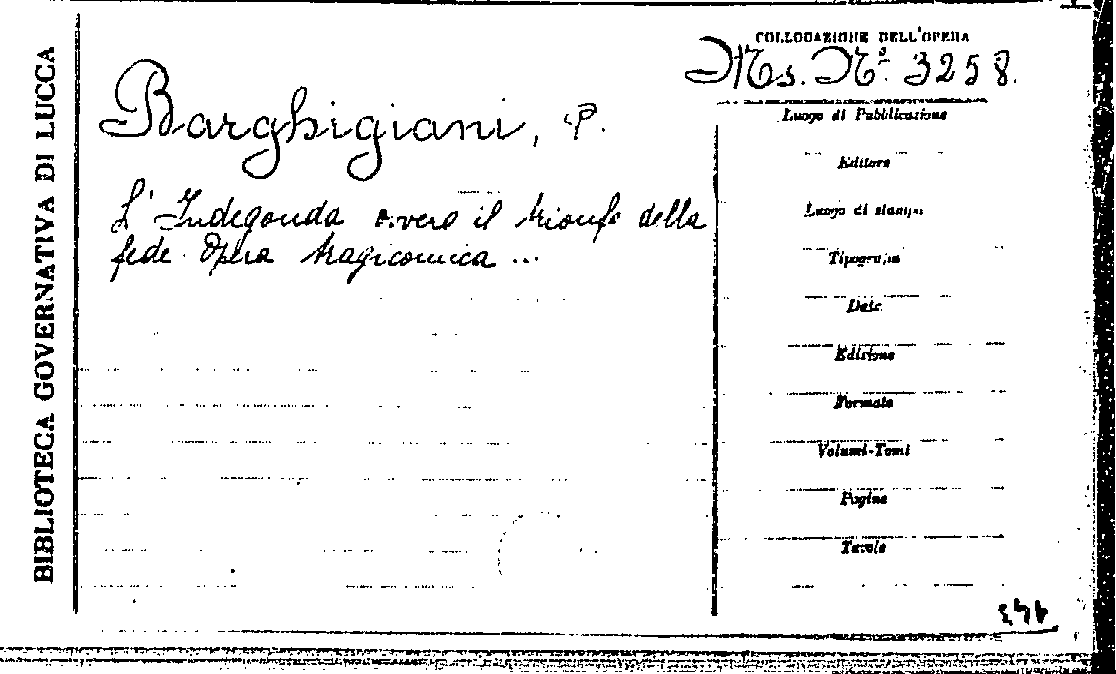 BIBLIOTECA GOVERNATIVA DI LUCCA
COLLOCAZIONE DELL'OPERA
Ms. N.º 3258.
Barghigiani, P.
L'Indegonda ovvero il trionfo della
fede. Opera tragicomica ...
Luogo di Pubblicazione
Editore
Luogo di stampa
Tipografia
Data
Edizione
Formato
Volumi-Tomi
Pagine
Tavole